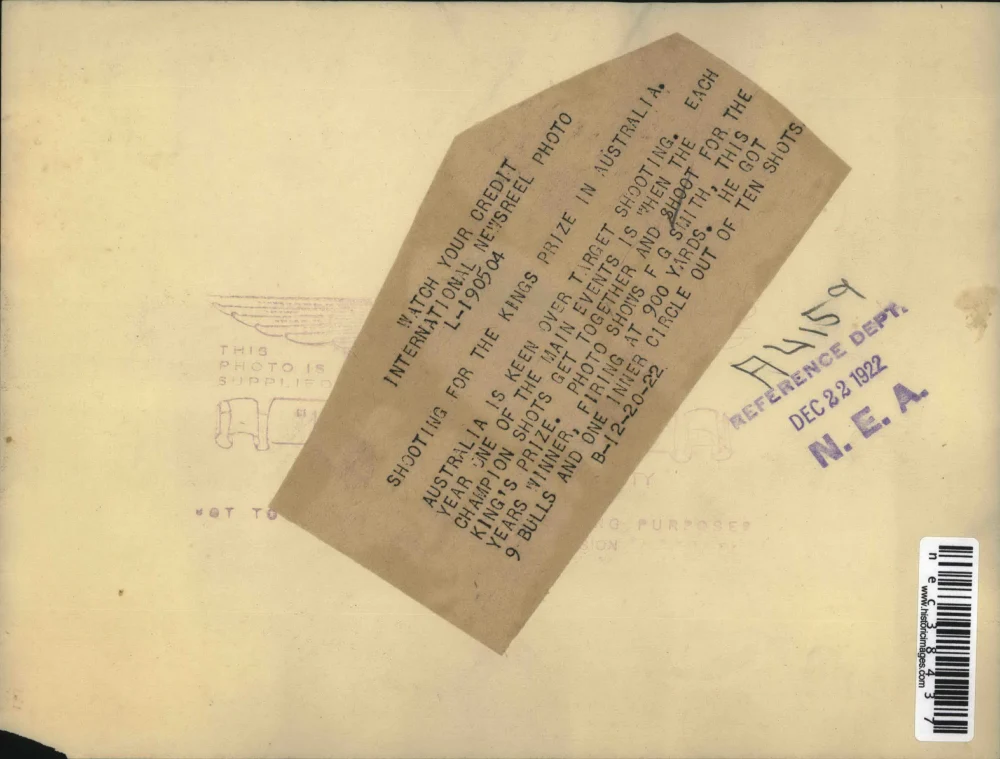 WATCH YOUR CREDIT
INTERNATIONAL NEWSREEL PHOTO
L-190504
SHOOTING FOR THE KINGS PRIZE IN AUSTRALIA.
AUSTRALIA IS KEEN OVER TARGET SHOOTING. EACH
YEAR ONE OF THE MAIN EVENTS IS WHEN THE
CHAMPION SHOTS GET TOGETHER AND SHOOT FOR THE
KING'S PRIZE. PHOTO SHOWS F G SMITH, THIS
YEARS WINNER, FIRING AT 900 YARDS. HE GOT
9 BULLS AND ONE INNER CIRCLE OUT OF TEN SHOTS
B-12-20-22
A4159
REFERENCE DEPT.
DEC 22 1922
N. E. A.
THIS
PHOTO IS
SUPPLIED
NOT TO
PURPOSES
nec38437
www.historicimages.com